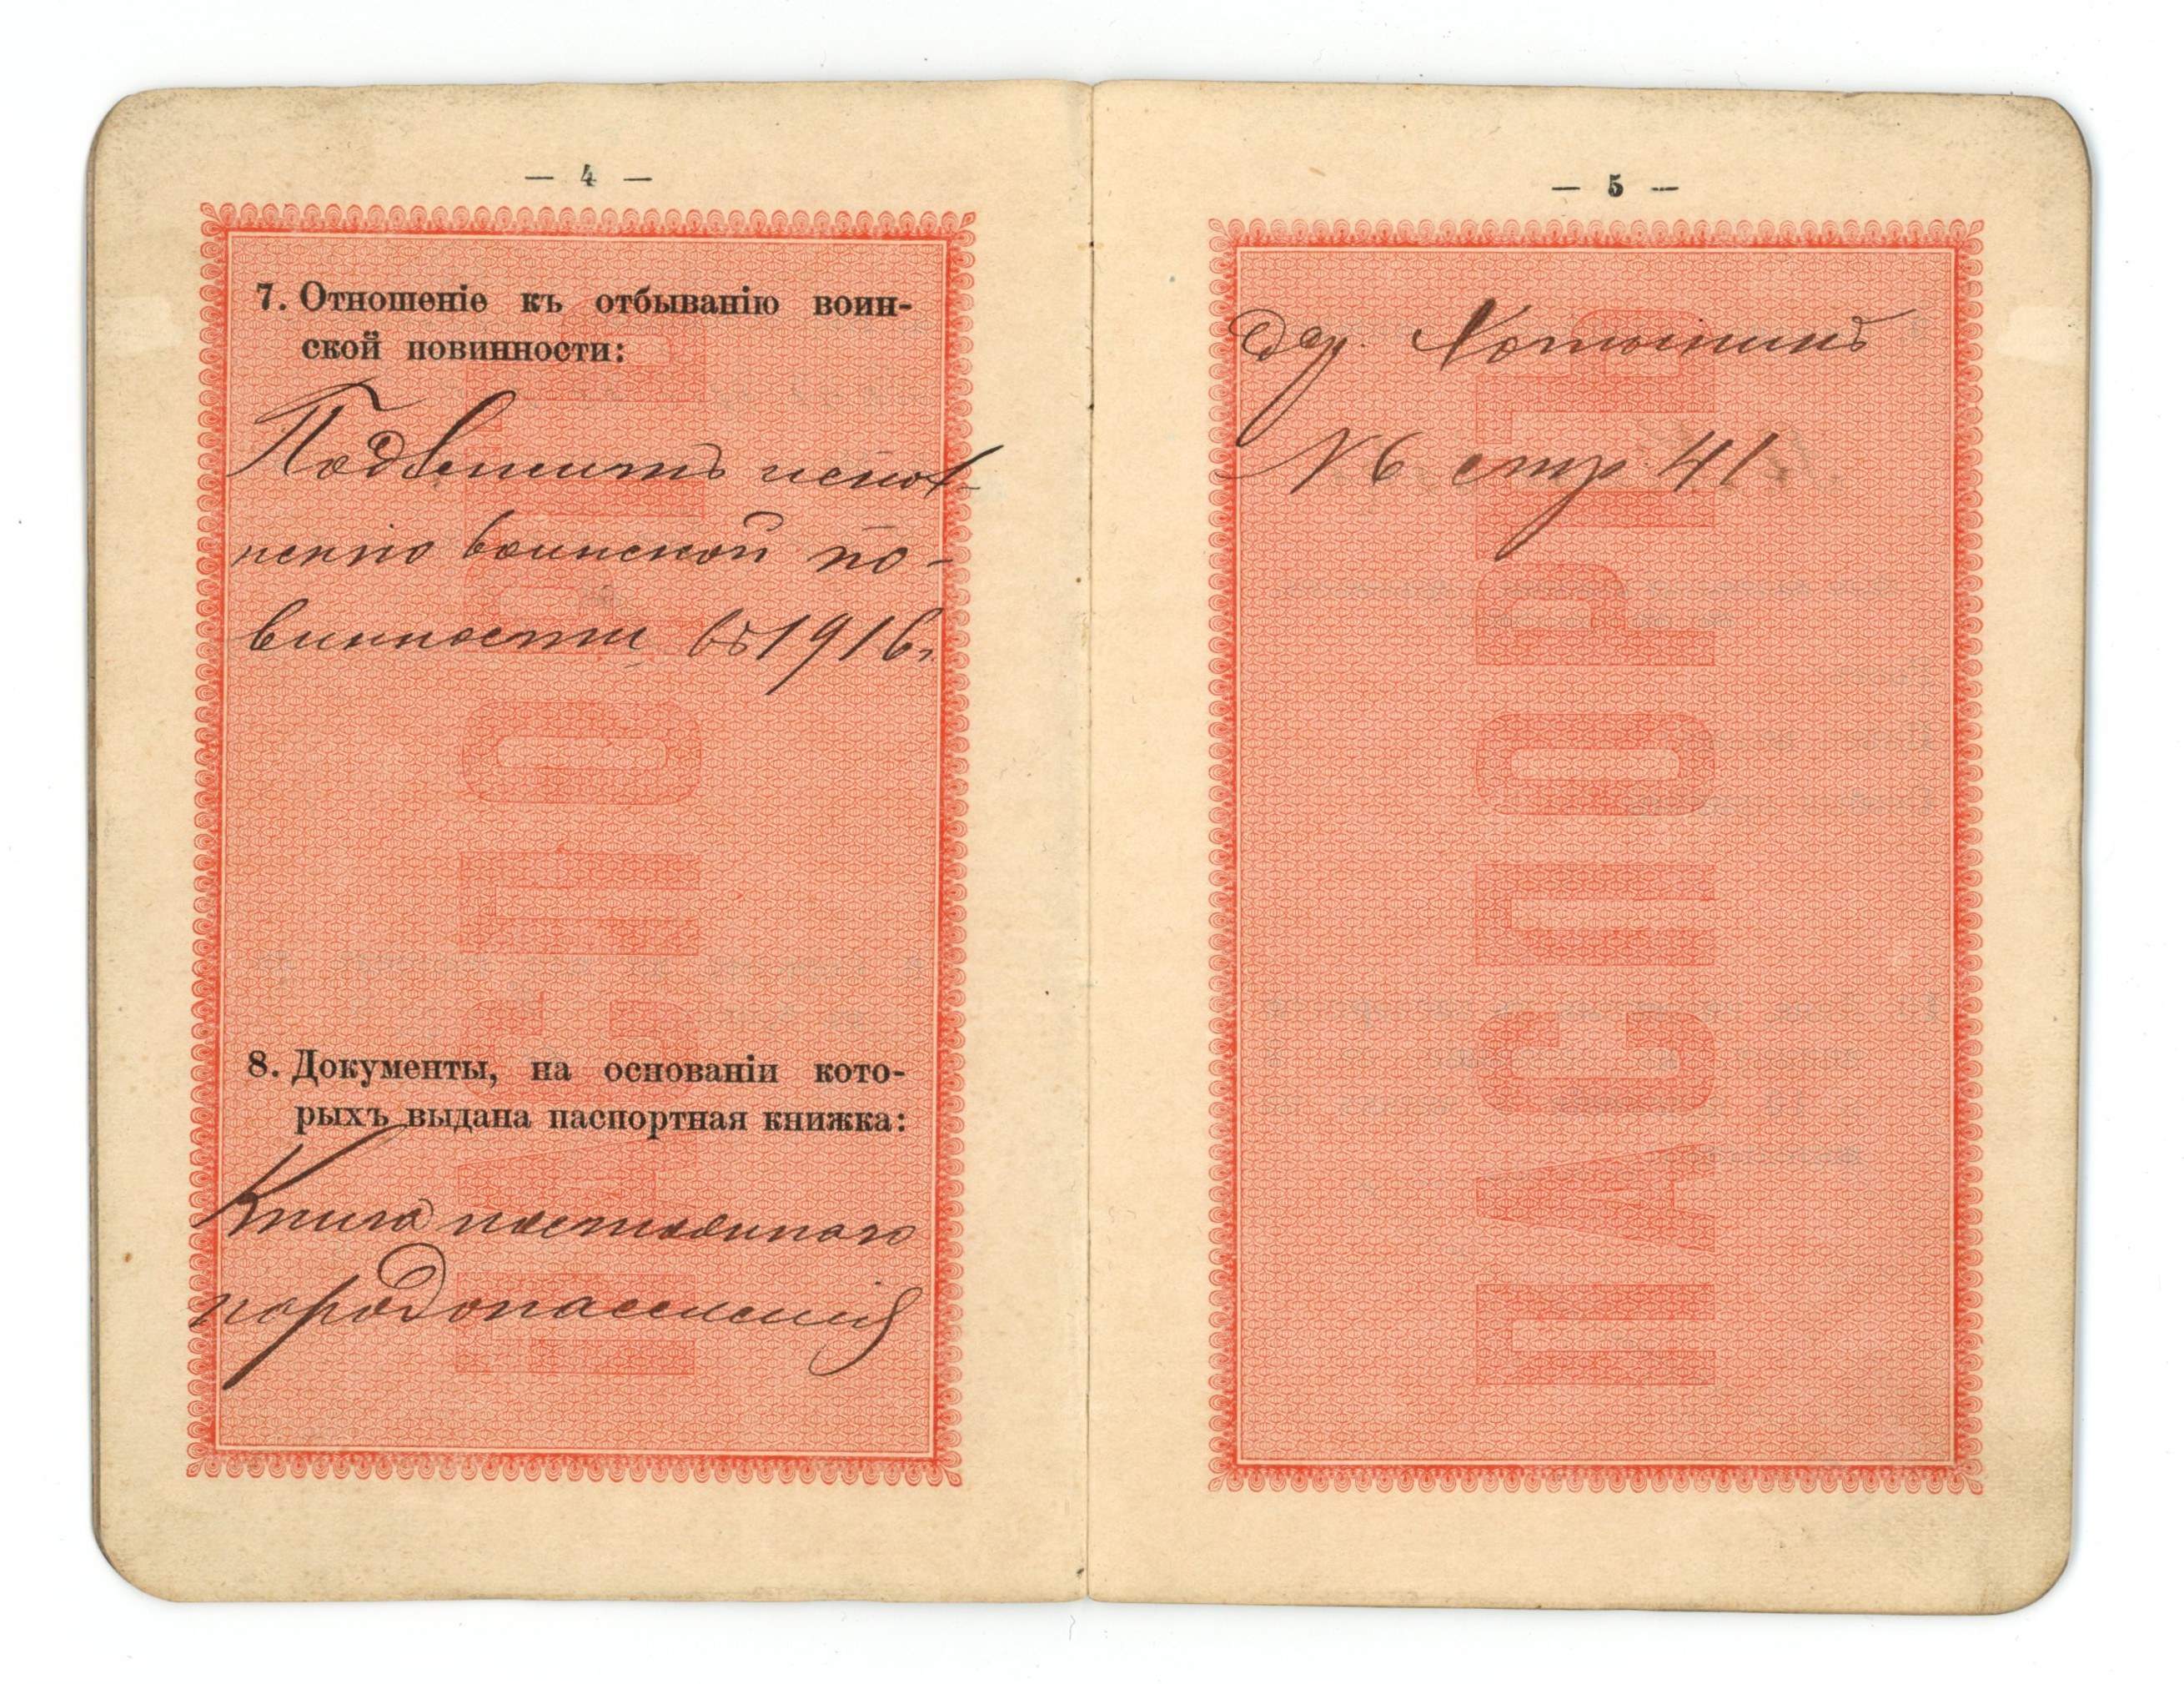 — 4 —
7. Отношеніе къ отбыванію воин-
ской повинности:
Подлежитъ испол
ненію воинской по-
винности въ 1916 г.
8. Документы, на основаніи кото-
рыхъ выдана паспортная книжка:
Книга постояннаго
народонаселенія
— 5 —
дер.
№ 6 стр. 41
ПАСПОРТЪ
ПАСПОРТЪ